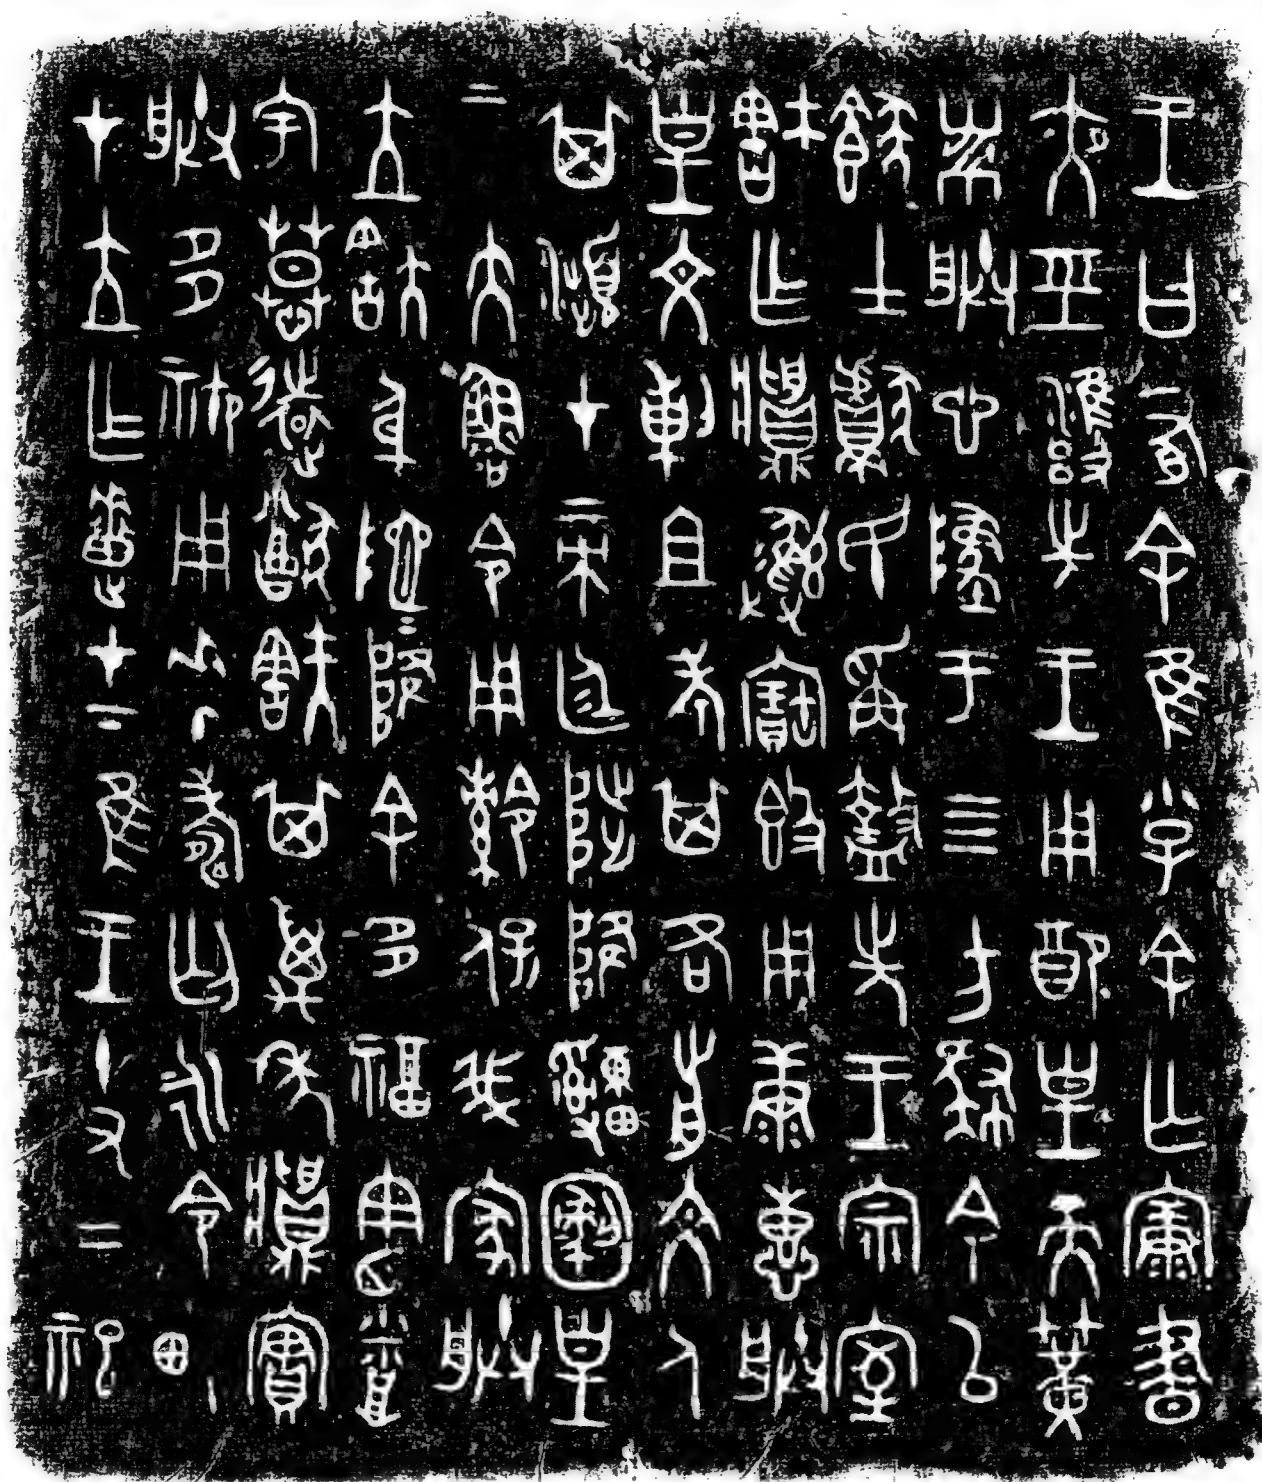 王曰有余隹小子余亡康晝
夜巠雍先王用配皇天簧
黹朕心墜于四方肆余以
士獻民爯盩先王宗室
㝬乍𩰫彝寶簋用康惠朕
皇文剌且考其各前文人
其瀕才帝廷陟降皇
帝大魯令用保我家朕
立㝬身阤=降余多福憲烝
宇慕遠猷㝬其萬年𩰫實
朕多禦用𠦪壽匄永令畯
才立乍疐才下隹王十又二祀